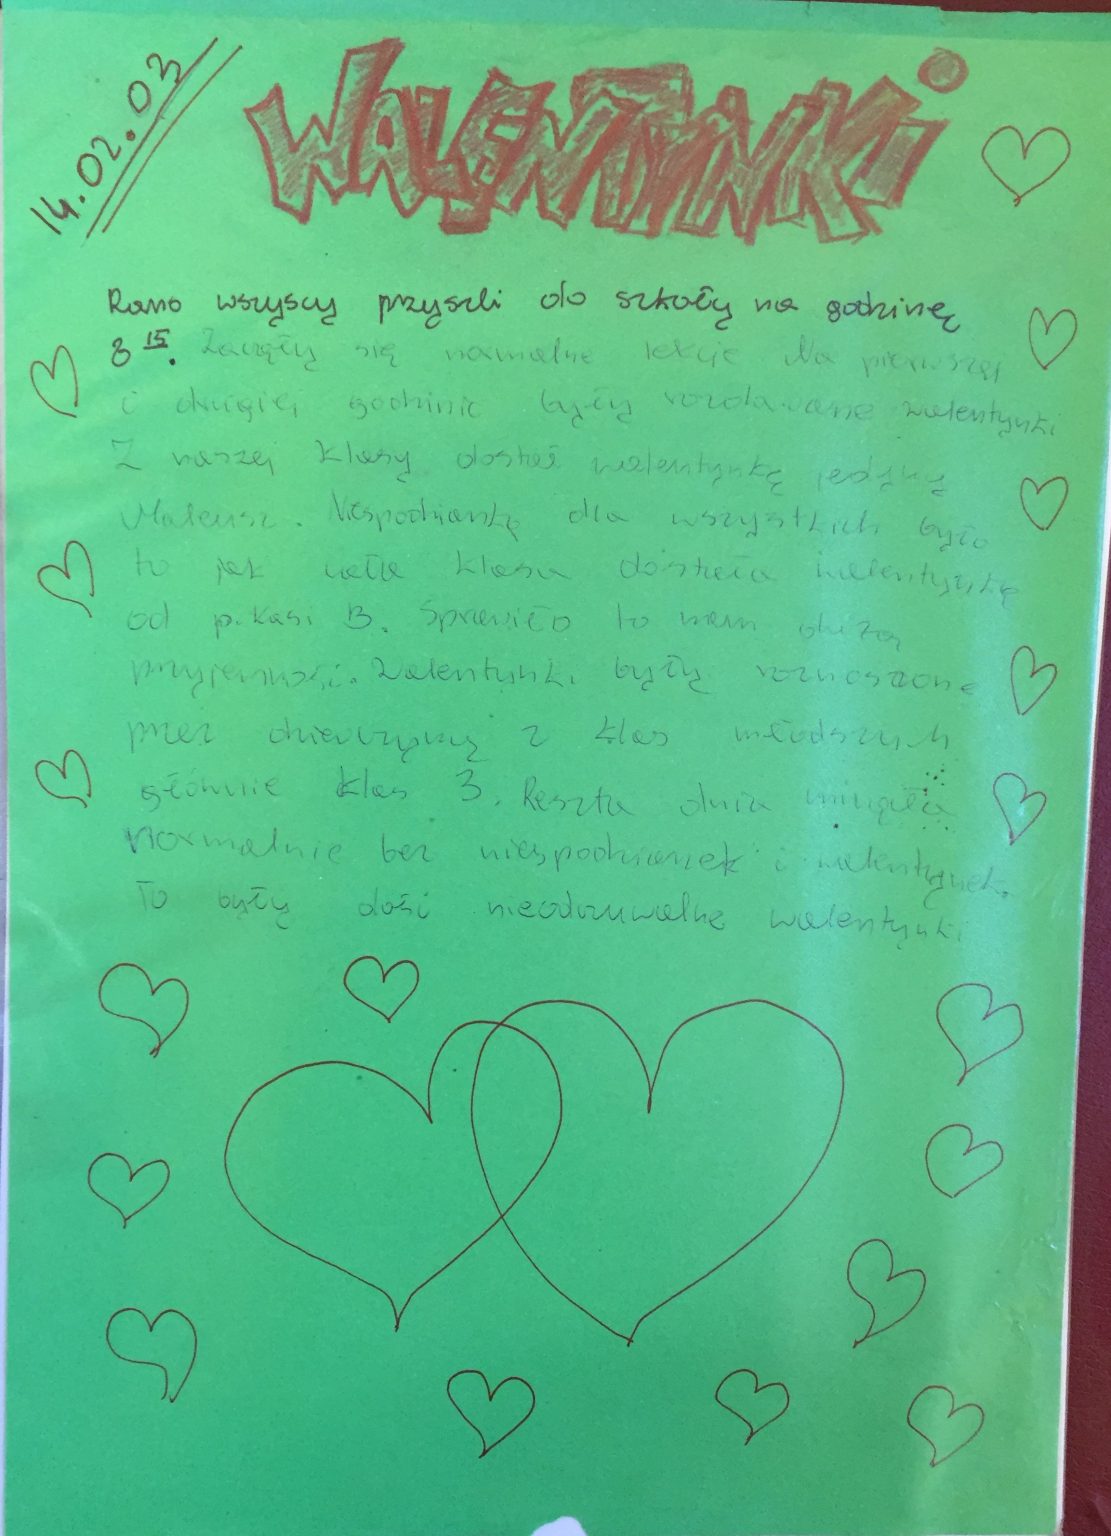 14.02.03
WALENTYNKi
Rano wszyscy przyszli do szkoły na godzinę
8 15. Zaczęły się normalne lekcje Na pierwszej
i drugiej godzinie były rozdawane walentynki
Z naszej klasy dostał walentynkę jedyny
Mateusz. Niespodzianką dla wszystkich było
to jak cała klasa dostała walentynkę
od p. Kasi B. Sprawiło to nam dużą
przyjemność. Walentynki były roznoszone
przez dziewczyny z klas młodszych
głównie klas 3. Reszta dnia minęła
normalnie bez niespodzianek i walentynek.
To były dość nieodczuwalne walentynki